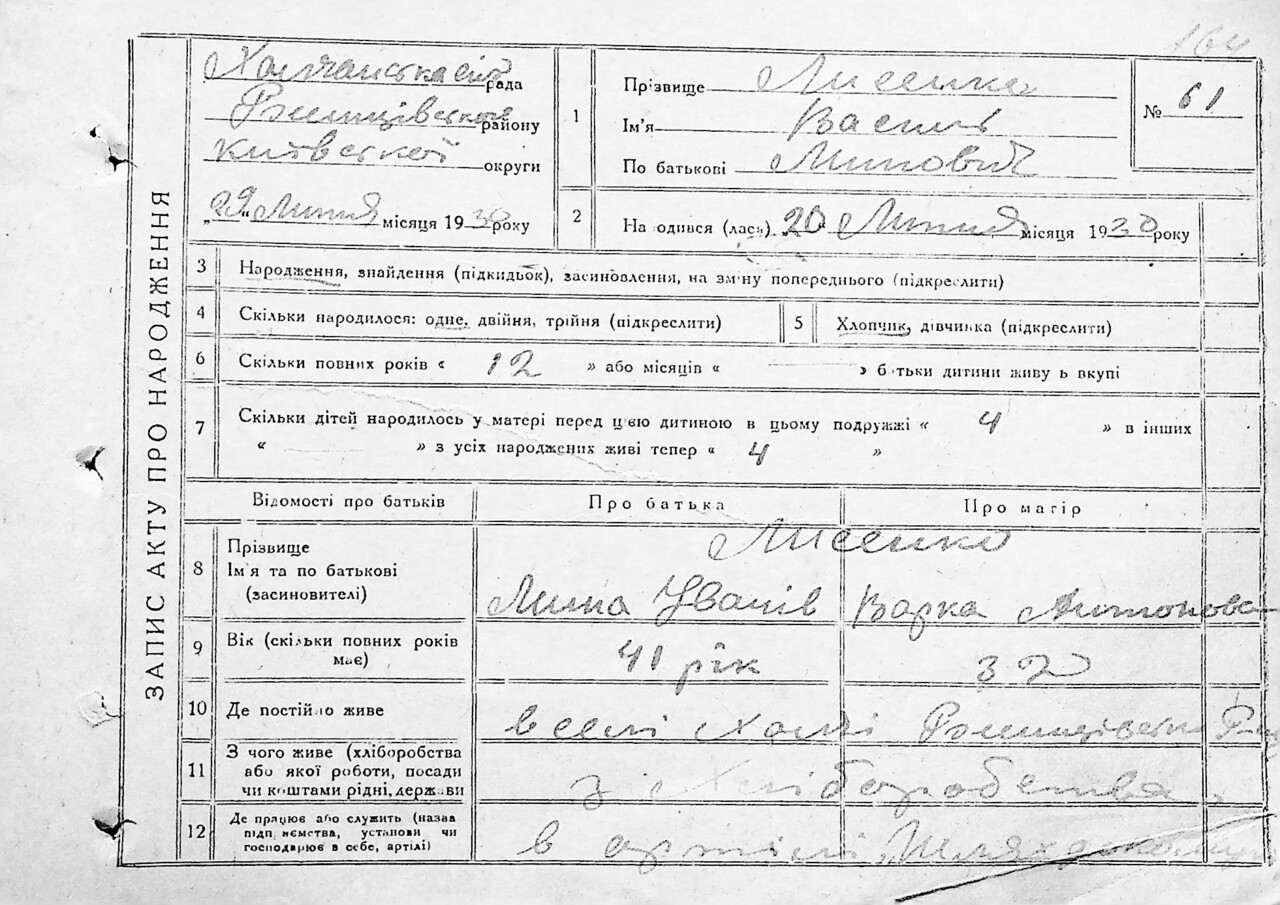 164
ЗАПИС АКТУ ПРО НАРОДЖЕННЯ
рада
району
Київської округи
"29" Липня місяця 1930 року
1
Прізвище Лисенко
Ім'я Василь
По батькові
№ 61
2
На одився (лась) 20 Липня місяця 1930 року
3 Народження, знайдення (підкидьок), засиновлення, на зміну попереднього (підкреслити)
4 Скільки народилося: одне, двійня, трійня (підкреслити)
5 Хлопчик, дівчинка (підкреслити)
6 Скільки повних років « 12 » або місяців « » батьки дитини живуть вкупі
7 Скільки дітей народилось у матері перед цією дитиною в цьому подружжі « 4 » в інших
« » з усіх народжених живі тепер « 4 »
Відомості про батьків
Про батька
Про матір
8 Прізвище
Ім'я та по батькові
(засновителі)
Лисенко
Варка Антонова
9 Вік (скільки повних років
має)
41 рік
32
10 Де постійно живе
в селі
11 З чого живе (хліборобства
або якої роботи, посади
чи коштами рідні, держави
з Хліборобства
12 Де працює або служить (назва
підприємства, установи чи
господарює в себе, артілі)
в артілі